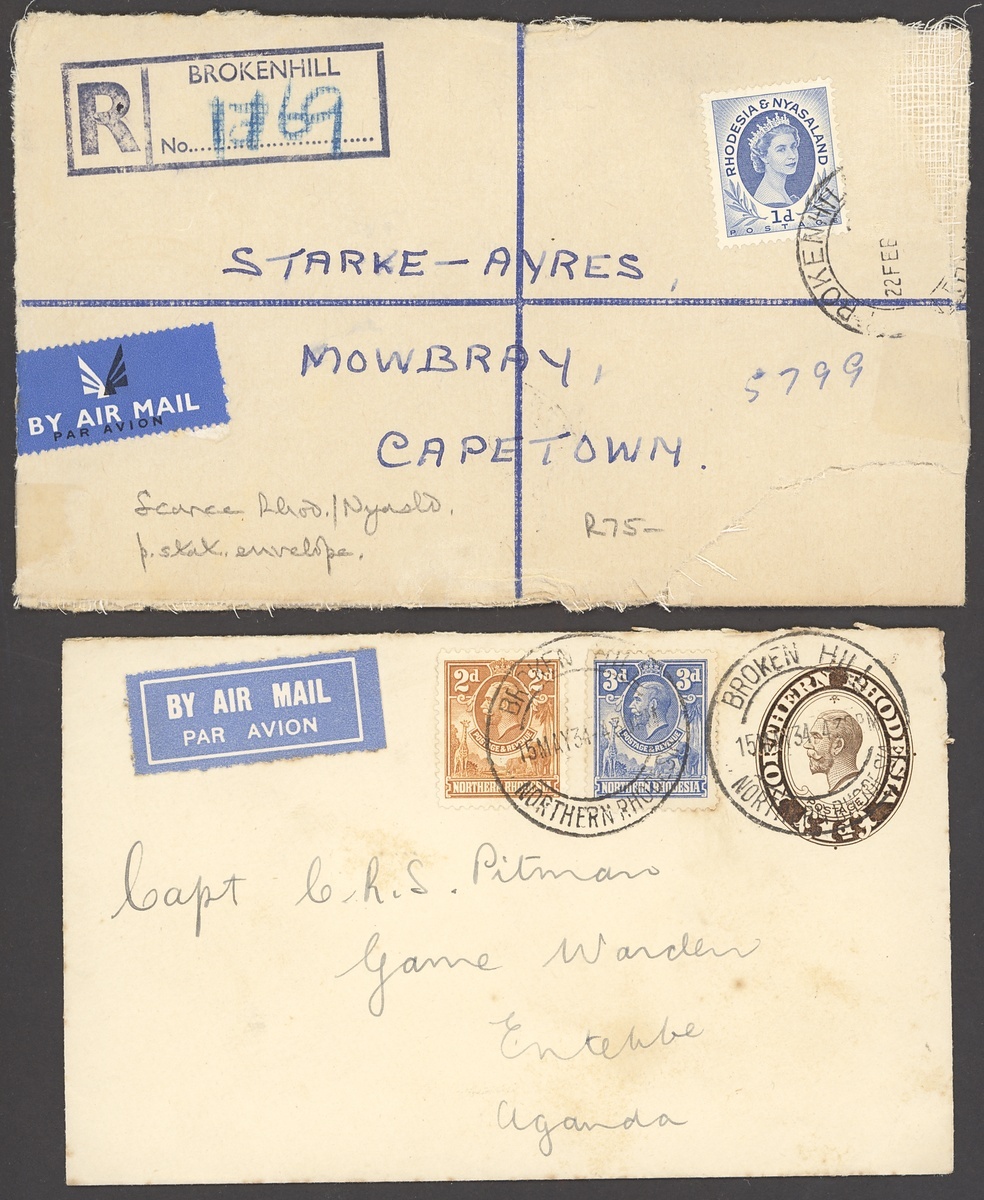 BROKENHILL
R
No. 1769
RHODESIA & NYASALAND
1d
POSTAGE
BROKEN HILL
22 FEB
STARKE-AYRES,
MOWBRAY,
5799
CAPETOWN.
BY AIR MAIL
PAR AVION
Scarce Rhod./Nyasld.
p. stat. envelope.
R75-
BY AIR MAIL
PAR AVION
2d 2d
POSTAGE & REVENUE
NORTHERN RHODESIA
3d 3d
POSTAGE & REVENUE
NORTHERN RHODESIA
BROKEN HILL
15 MAY 34
NORTHERN RHO
BROKEN HILL
15 34
NORTH
NORTHERN RHODESIA
POSTAGE
Capt C.R.S. Pitman
Game Warden
Entebbe
Uganda